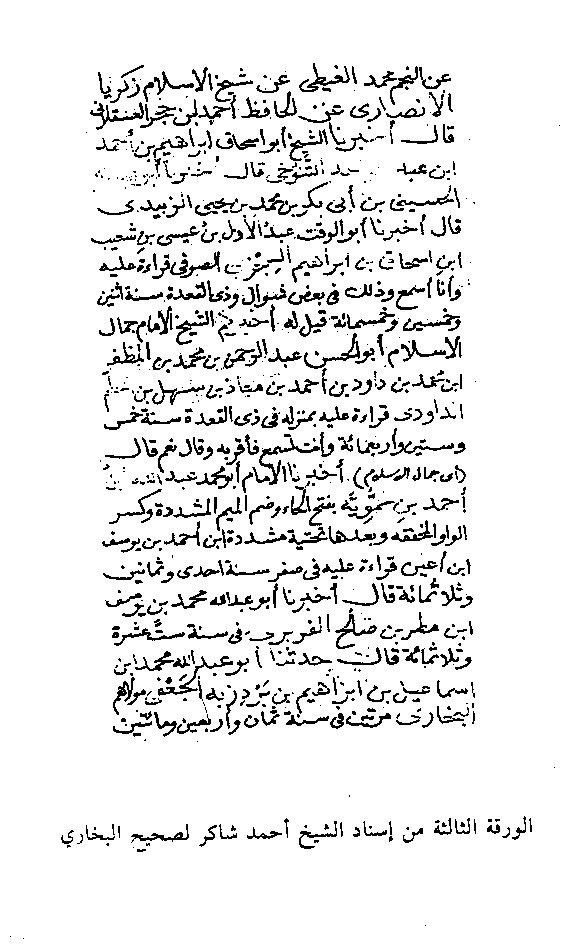 عن النجم محمد الغيطي عن شيخ الاسلام زكريا
الانصارى عن الحافظ أحمد بن حجر العسقلانى
قال أخبرنا الشيخ أبو اسحاق ابراهيم بن أحمد
ابن عبد حد التنوخى قال
الحسينى بن أبى بكر بن محمد بن يحيى الزبيدى
قال أخبرنا أبو الوقت عبد الأول بن عيسى بن شعيب
ابن اسحاق بن ابراهيم السجزى الصوفى قراءة عليه
وأنا أسمع وذلك فى بعض شوال وذى القعدة سنة اثنين
وخمسين وخمسمائة قيل له أخبركم الشيخ الامام جمال
الاسلام أبو الحسن عبد الرحمن بن محمد بن المظفر
ابن محمد بن داود بن أحمد بن معاذ بن سهل بن
الداودى قراءة عليه بمنزله فى ذى القعدة سنة خمس
وستين واربعمائة وأنت تسمع فأقر به وقال نعم قال
(أى جمال الاسلام) أخبرنا الامام أبو محمد عبد الله بن
أحمد بن حمُّويَه بفتح الحاء وضم الميم المشددة وكسر
الواو المخففه وبعدها تحتية مشددة ابن أحمد بن يوسف
ابن أعين قراءة عليه فى صفر سنة احدى وثمانين
وثلاثمائة قال أخبرنا أبو عبد الله محمد بن يوسف
ابن مطر بن صالح الفربرى فى سنة ستَّ عشرة
وثلاثمائة قال حدثنا أبو عبد الله محمد ابن
اسماعيل بن ابراهيم بن بَرْدِزبه الجُعْفى مولاهم
البخارى مرتين فى سنة ثمان وأربعين ومائتين
الورقة الثالثة من إسناد الشيخ أحمد شاكر لصحيح البخاري